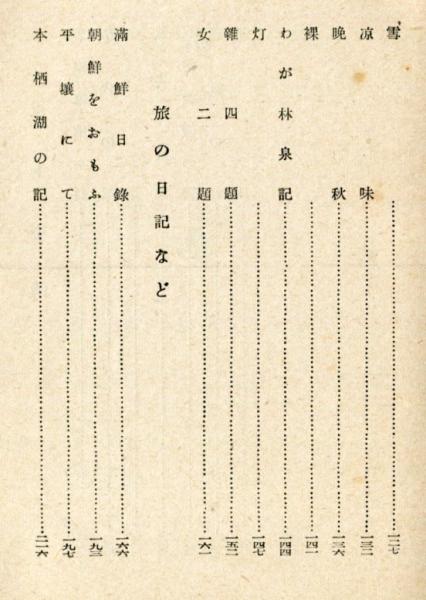 雪……一二七
涼味……一三二
晩秋……一三六
裸……一四一
わが林泉記……一四四
灯……一四七
雜四題……一五二
女二題……一六一
旅の日記など
滿鮮日錄……一六六
朝鮮をおもふ……一九三
平壤にて……一九七
本栖湖の記……二一六